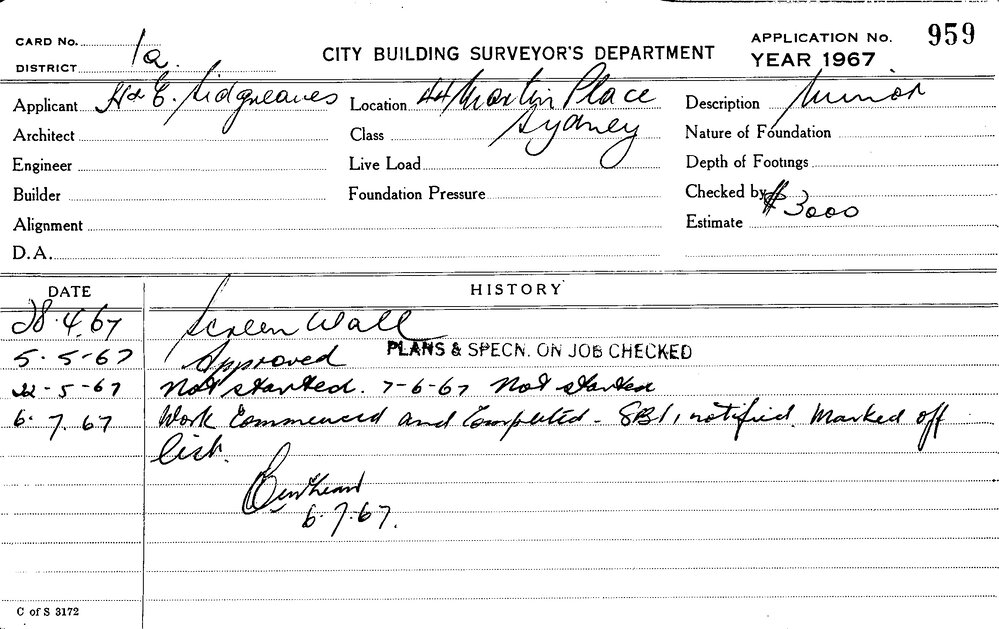 CARD No.
DISTRICT 1a
CITY BUILDING SURVEYOR'S DEPARTMENT
APPLICATION No. 959
YEAR 1967
Applicant H & E. Sidgreaves
Location 44 Martin Place
Sydney
Description Minor
Architect
Class
Nature of Foundation
Engineer
Live Load
Depth of Footings
Builder
Foundation Pressure
Checked by
Alignment
Estimate $3000
D.A.
DATE HISTORY
28.4.67 Screen Wall
5-5-67 Approved PLANS & SPECN. ON JOB CHECKED
22-5-67 Not started. 7-6-67 Not started
6.7.67 Work Commenced and Completed - SBI, notified. Marked off
list.
6.7.67.
C of S 3172